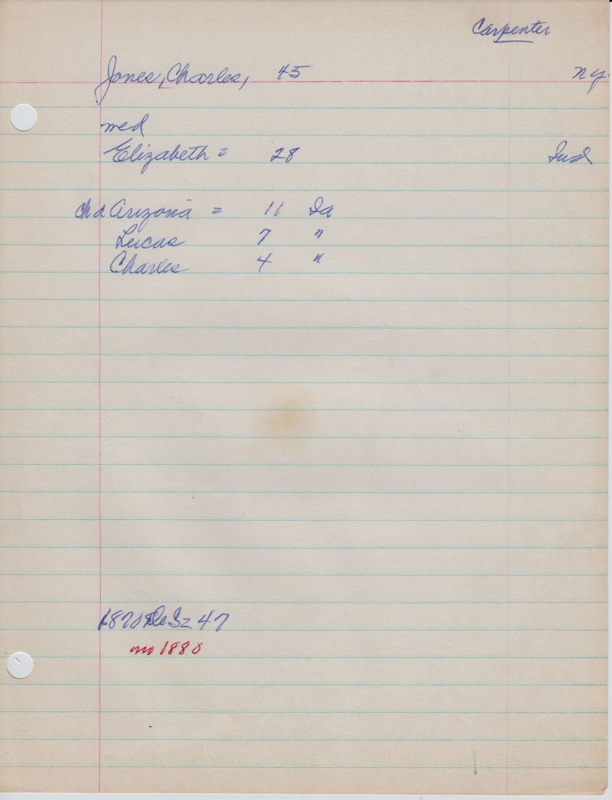 Carpenter
Jones, Charles, 45 NY.
med
Elizabeth = 28 Ind
chd Arizona = 11 Ia
Lucas 7 "
Charles 4 "
1870 47
no 1880